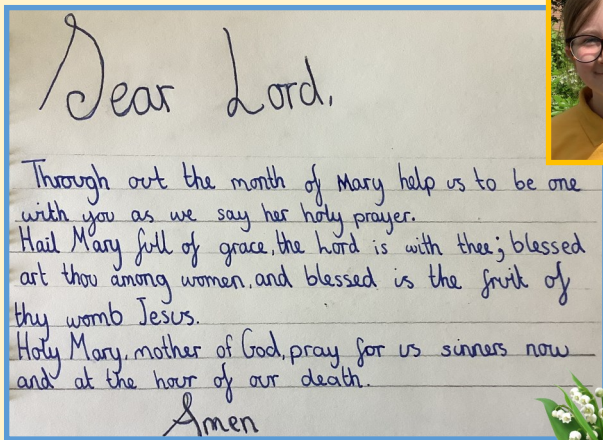 Dear Lord,
Through out the month of Mary help us to be one
with you as we say her holy prayer.
Hail Mary full of grace, the Lord is with thee; blessed
art thou among women, and blessed is the fruit of
thy womb Jesus.
Holy Mary, mother of God, pray for us sinners now
and at the hour of our death.
Amen